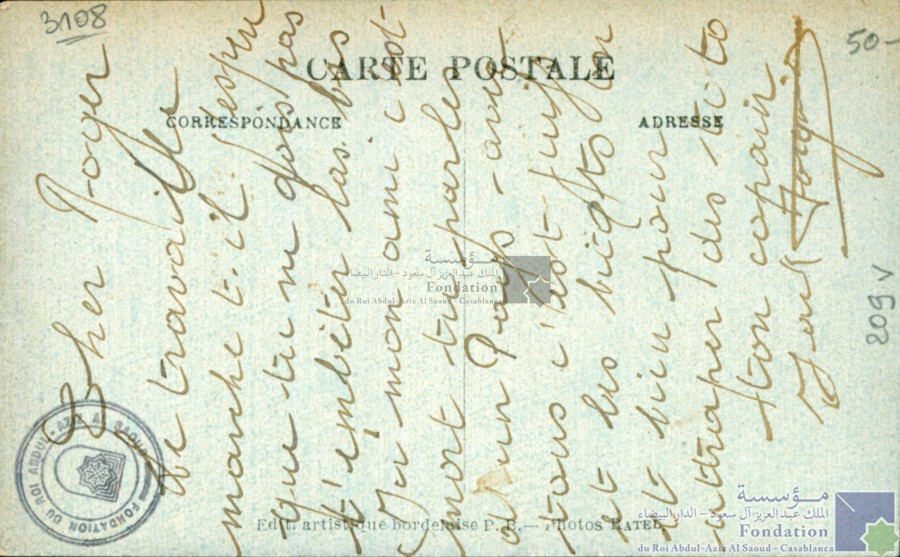 3108
50-
CARTE POSTALE
CORRESPONDANCE
ADRESSE
Cher Roger
Le travail
marche t-il j'espère
que tu ne dois pas
t'embêter las bas
Ici mon ami c'est
mort tu parles
d'un Pays - ami
tous c'est juif
et les bicots
est bien pour
attraper des
ton copain
209 v
Edit. artistique bordelaise P. B. — Photos RATEL
FONDATION DU ROI ABDUL-AZIZ AL SAOUD
مؤسسة
الملك عبد العزيز آل سعود - الدار البيضاء
Fondation
du Roi Abdul-Aziz Al Saoud - Casablanca
مؤسسة
الملك عبد العزيز آل سعود - الدار البيضاء
Fondation
du Roi Abdul-Aziz Al Saoud - Casablanca